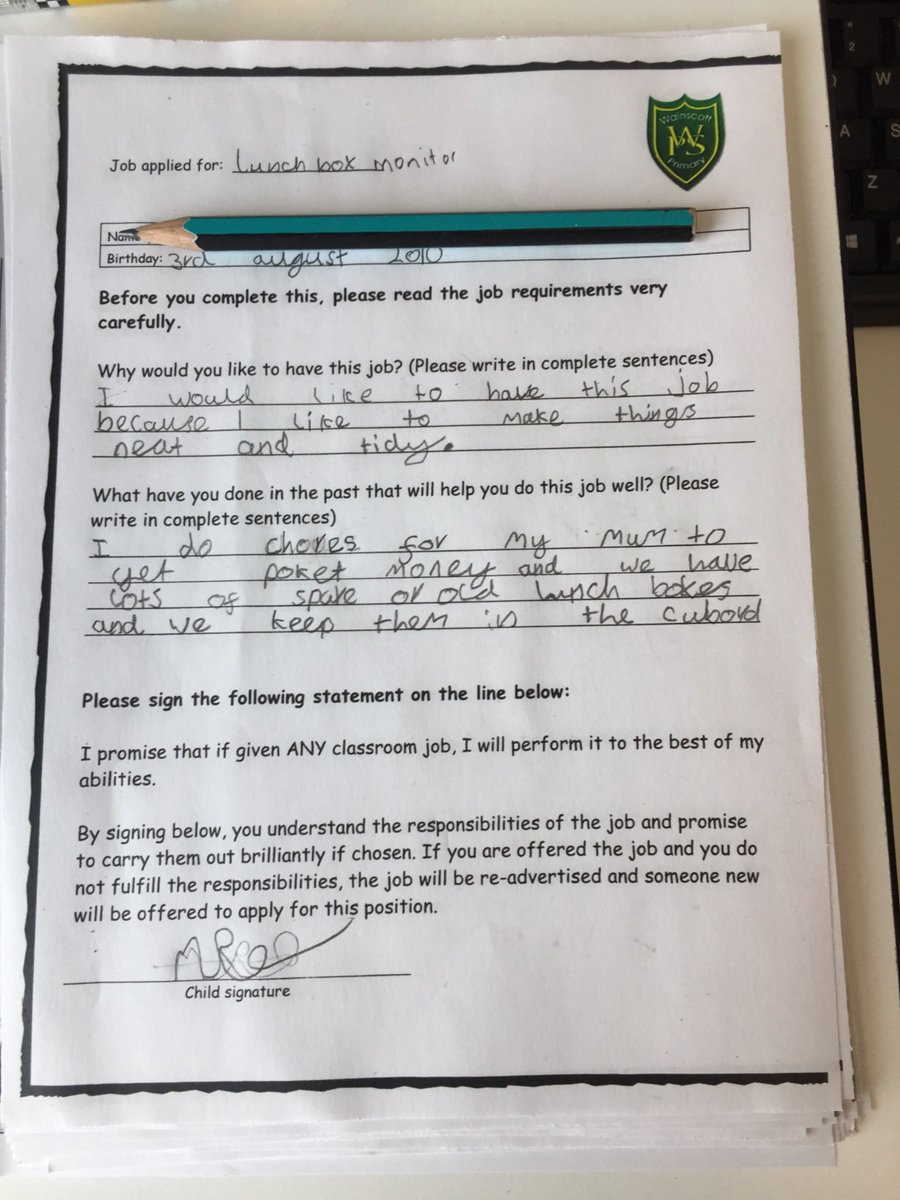 Wainscott
WPS
Primary
Job applied for: Lunch box monitor
Name
Birthday: 3rd august 2010
Before you complete this, please read the job requirements very
carefully.
Why would you like to have this job? (Please write in complete sentences)
I would like to have this job
because I like to make things
neat and tidy.
What have you done in the past that will help you do this job well? (Please
write in complete sentences)
I do chores for my mum to
get poket money and we have
lots of spare or old lunch boxes
and we keep them in the cubord
Please sign the following statement on the line below:
I promise that if given ANY classroom job, I will perform it to the best of my
abilities.
By signing below, you understand the responsibilities of the job and promise
to carry them out brilliantly if chosen. If you are offered the job and you do
not fulfill the responsibilities, the job will be re-advertised and someone new
will be offered to apply for this position.
Child signature
2
W
A
S
Z